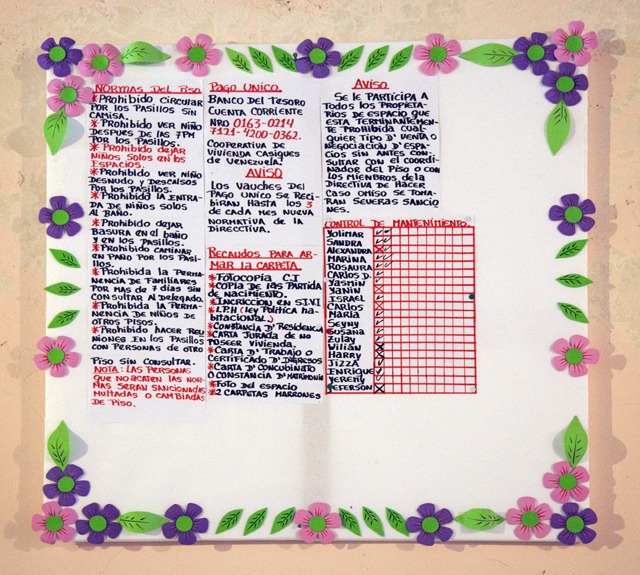 NORMAS DEL PISO
*Prohibido circular
POR LOS PASILLOS SIN
CAMISA.
*Prohibido VER NIÑO
DESPUES DE LAS 7PM
POR LOS PASILLOS.
*Prohibido dejar
NIÑOS SOLOS EN LOS
ESPACIOS.
*Prohibido VER NIÑO
DESNUDO Y DESCALSOS
POR LOS PASILLOS.
*Prohibido LA ENTRA-
DA DE NIÑOS SOLOS
AL BAÑO.
*Prohibido DEJAR
BASURA EN EL BAÑO
Y EN LOS PASILLOS.
*Prohibido CAMINAR
EN PAÑO POR LOS PASI-
LLOS.
*Prohibida la PERMA-
NENCIA DE FAMILIARES
POR MAS DE 7 DIAS SIN
CONSULTAR AL DELEGADO.
*Prohibida la PERMA-
NENCIA DE NIÑOS DE
OTROS PISOS.
*Prohibido HACER REU
NIONES EN LOS PASILLOS
CON PERSONAS DE OTRO
PISO SIN CONSULTAR.
NOTA: LAS PERSONAS
QUE NO ACATEN LAS NOR-
MAS SERAN SANCIONADAS
MULTADAS O CAMBIADAS
DE PISO.
PAGO UNICO.
BANCO DEL TESORO
CUENTA CORRIENTE
NRO 0163-0214
7121-4200-0362.
COOPERATIVA DE
VIVIENDA CASIQUES
DE VENEZUELA.
AVISO
LOS VAUCHES DEL
PAGO UNICO SE RECI-
BIRAN HASTA LOS 5
DE CADA MES NUEVA
NORMATIVA DE LA
DIRECCTIVA.
RECAUDOS PARA AR-
MAR LA CARPETA.
*FOTOCOPIA C.I
*COPIA DE LAS PARTIDA
DE NACIMIENTO.
*INCRICCION EN S.I.VI
*L.P.H (LEY POLITICA HA-
BITACIONAL.)
*CONSTANCIA D' RESIDENCIA
*CARTA JURADA DE NO
POSEER VIVIENDA.
*CARTA D' TRABAJO O
CERTIFICADO D' INGRESOS
*CARTA D' CONCUBINATO
O CONSTANCIA D' MATRIMONIO
*FOTO DEL ESPACIO
*2 CARPETAS MARRONES
AVISO
SE LE PARTICIPA A
TODOS LOS PROPIETA-
RIOS DE ESPACIO QUE
ESTA TERMINANTEMEN-
TE PROHIBIDA CUAL-
QUIER TIPO D' VENTA O
NEGOCIACION D' ESPA-
CIOS SIN ANTES CON-
SULTAR CON EL COORDI-
NADOR DEL PISO O CON
LOS MIENBROS DE LA
DIRECTIVA DE HACER
CASO OMISO SE TOMA-
RAN SEVERAS SANCIO
NES.
CONTROL DE MANTENIMIENTO.
YOLIMAR
SANDRA
ALEXANDRA
MARINA
ROSAURA
CARLOS D.
YASMIN
YANIN
ISRAEL
CARLOS
MARIA
SEYNY
SUSANA
ZULAY
VILIAN
HARRY
TIZZA
ENRIQUE
YERENY
JEFERSON